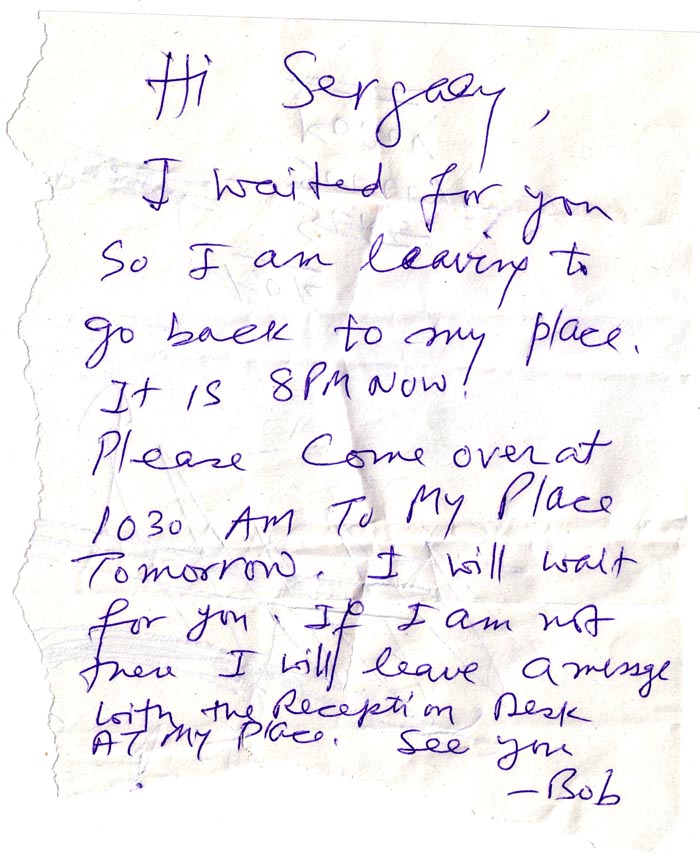 Hi Sergaey,
I waited for you
So I am leaving to
go back to my place.
It is 8PM NOW!
Please Come over at
1030 AM To My Place
Tomorrow. I will wait
for you. If I am not
there I will leave a messge
with the Reception Desk
AT My Place. See you
-Bob